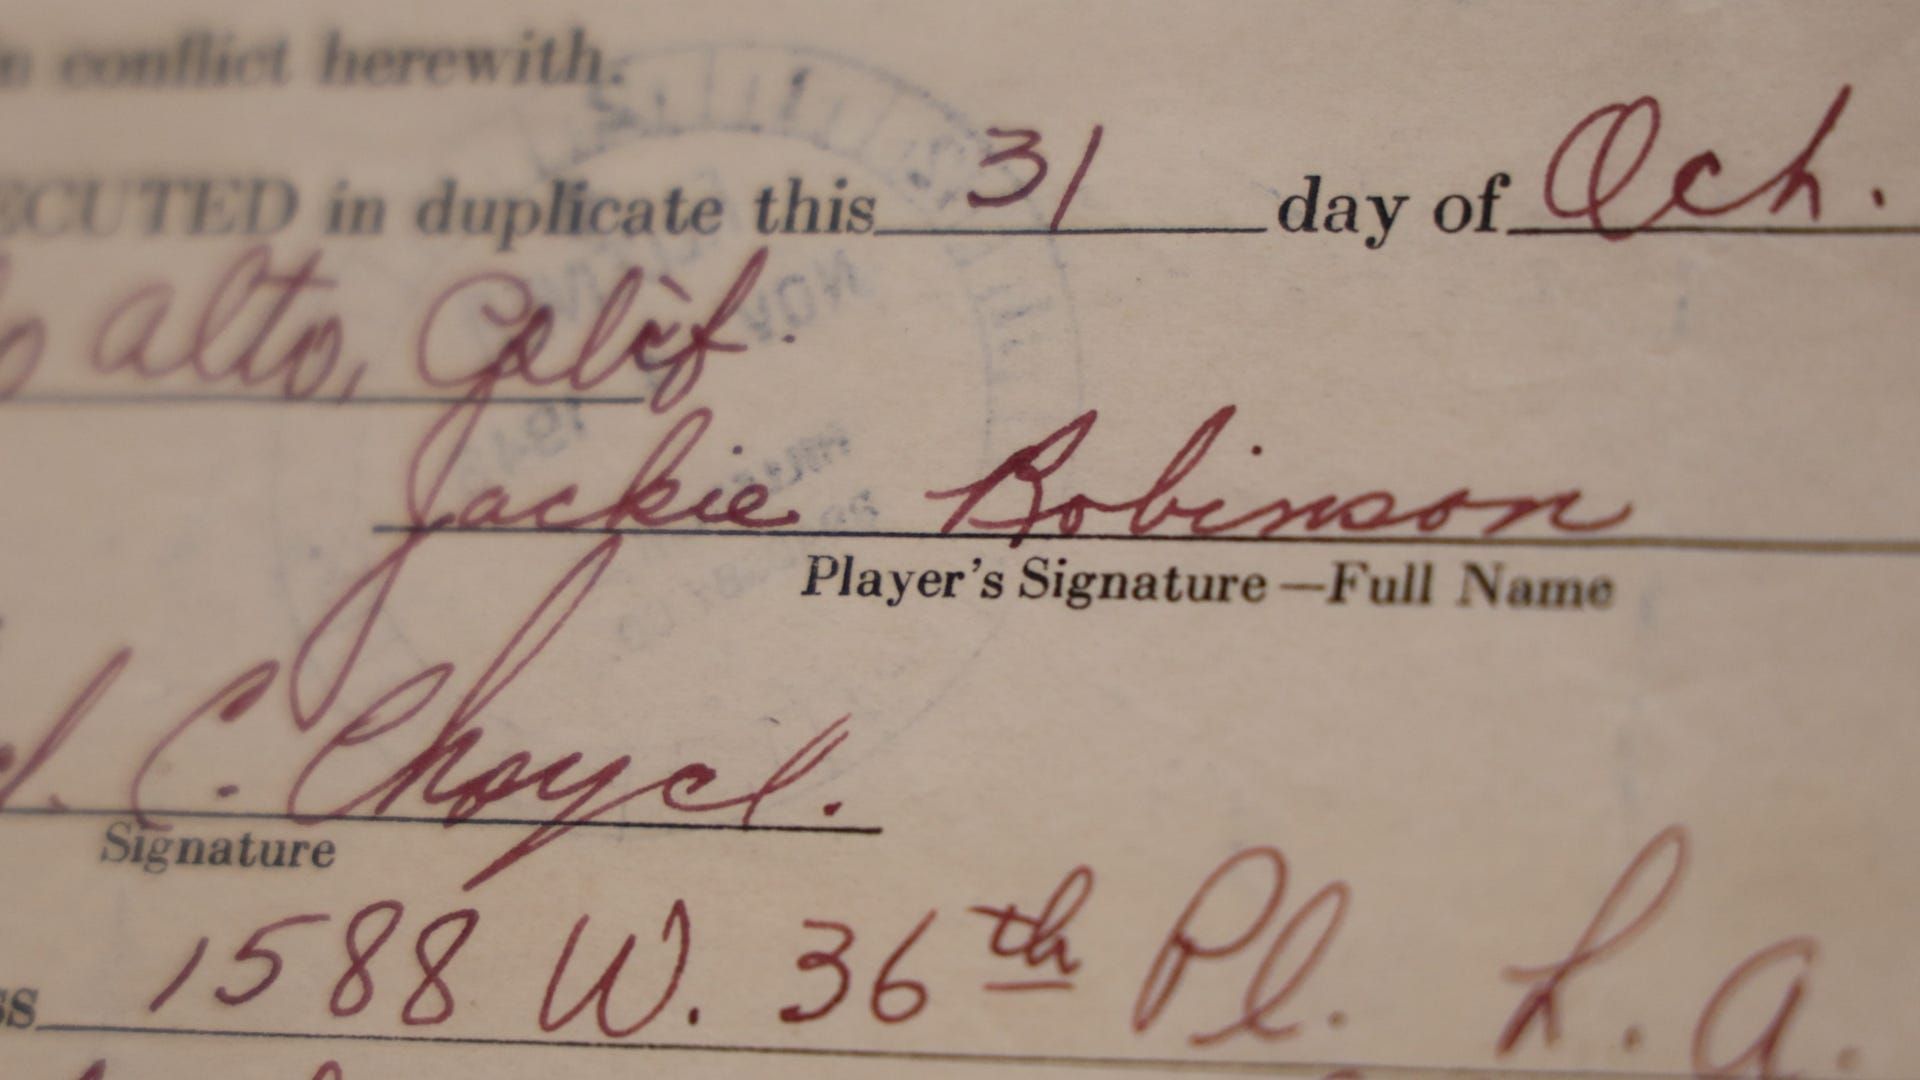 conflict herewith.
ECUTED in duplicate this 31 day of Oct.
Alto, Calif.
Jackie Robinson
Player's Signature—Full Name
C.
Signature
1588 W. 36th Pl. L.A.